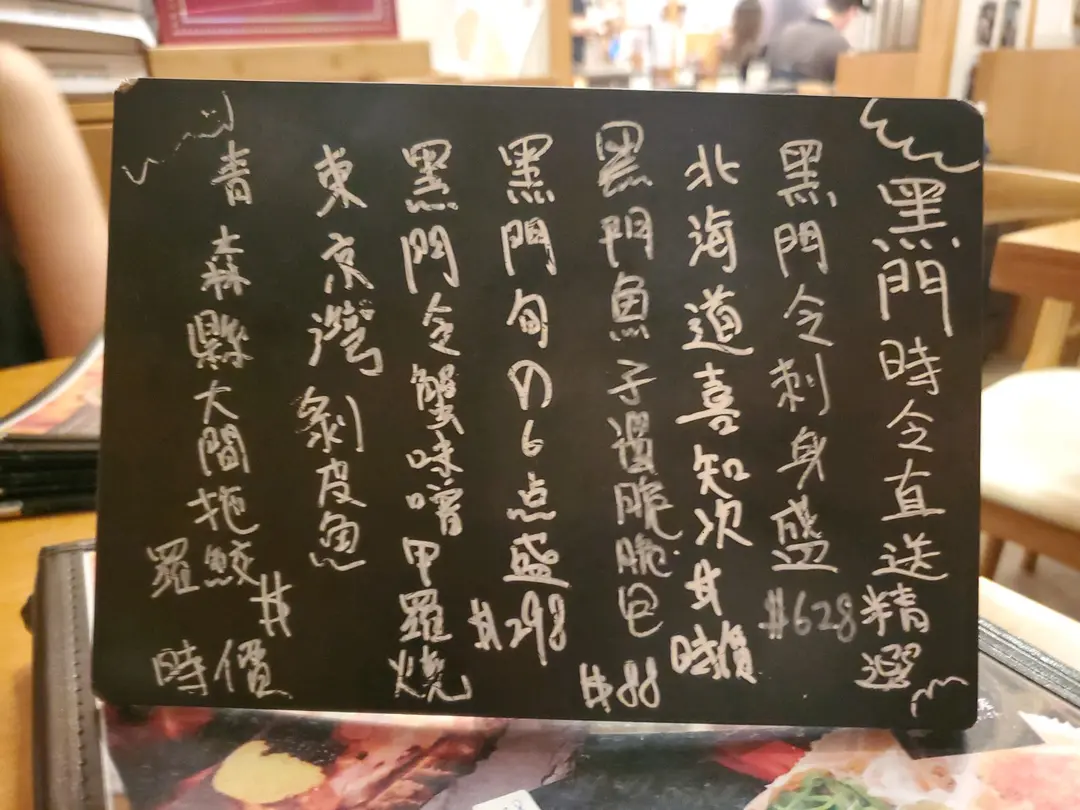 黑門時令直送精選
黑門令刺身盛 $628
北海道喜知次 $時價
黑門魚子漫脆脆包 $88
黑門旬の6点盛 $298
黑門令蟹味噌甲羅燒
東京灣剝皮魚
青森縣大間拖羅鮫 $時價